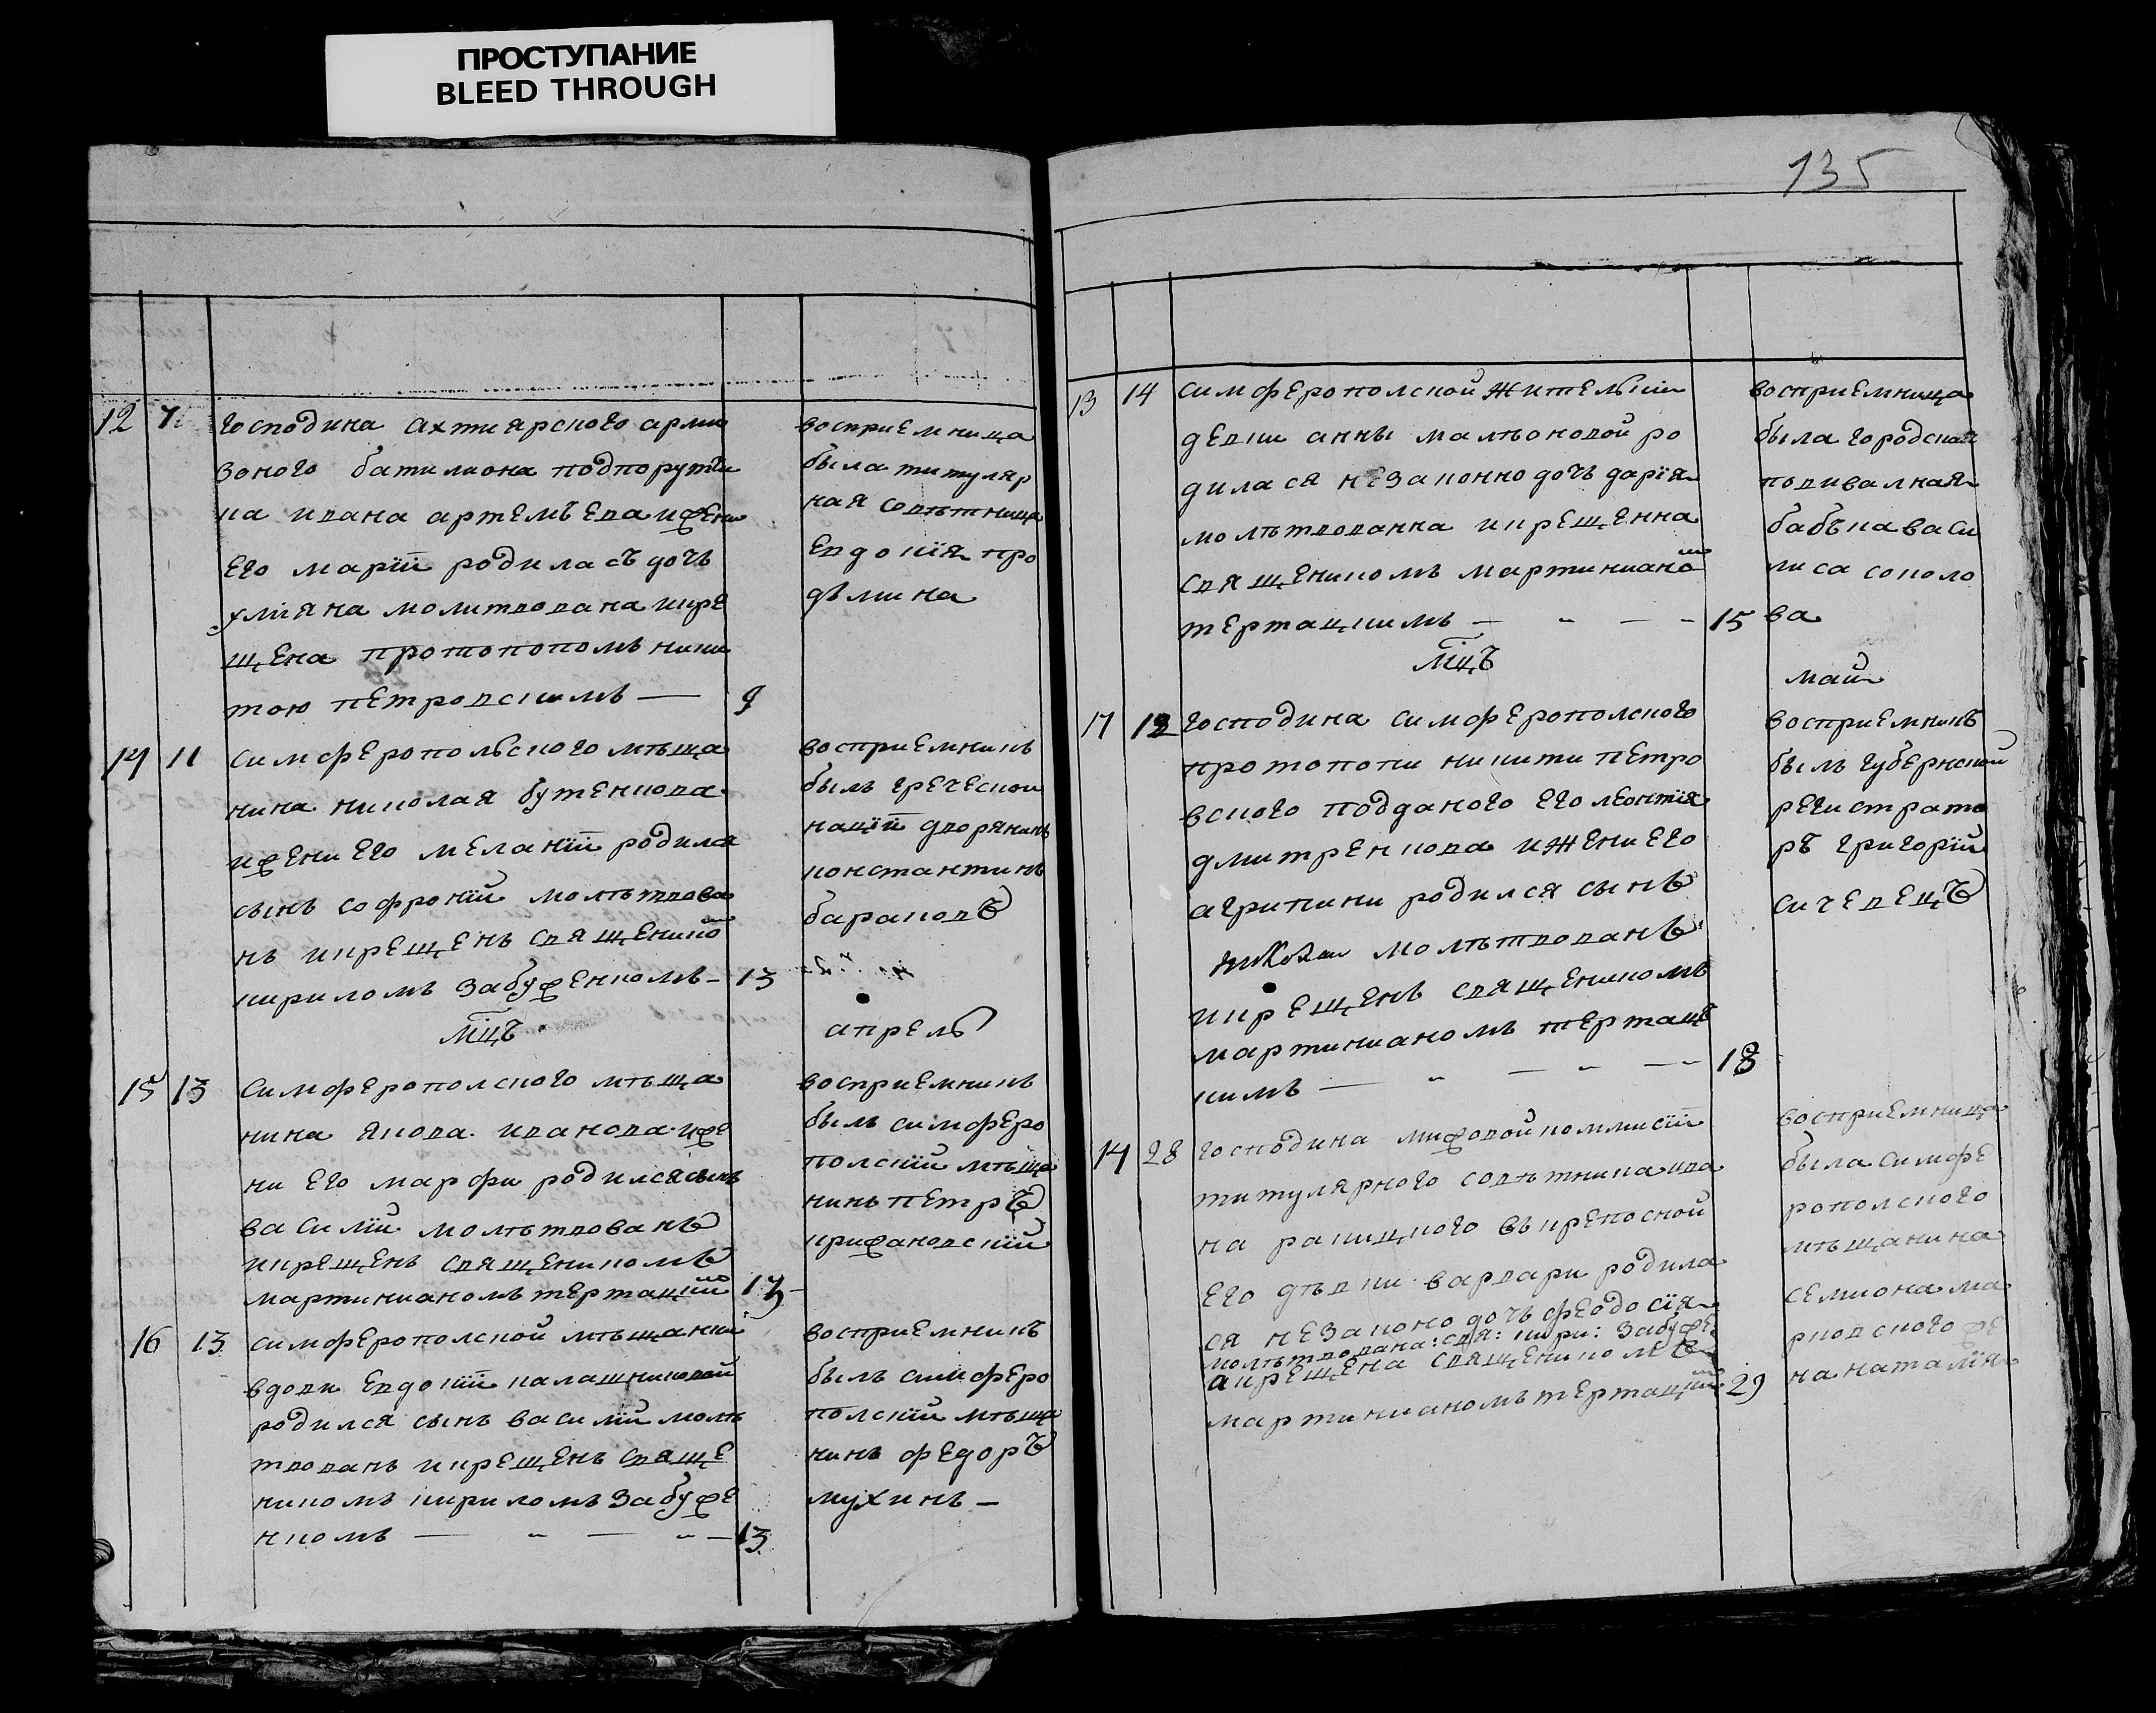 ПРОСТУПАНИЕ
BLEED THROUGH
12 7 господина ахтиярского арми
зоного батилиона подпорутчи
ка ивана артемъева ижени
Его марїи родиласъ дочъ
улияна молитвована икре
щена протопопомъ ники
тою пЕтровскимъ — 9
восприЕмница
была титуляр
ная совѣтница
Евдокїя про
14 11 симфЕропольского мѣща
нина николая бутЕнкова
ижЕни Его мЕланїи родился
сынъ софронїй молѣтвова
нъ икрЕщЕнъ свящЕнико
кириломъ забужЕнкомъ – 13
восприЕмникъ
былъ грЕчЕской
нацїи дворянинъ
константинъ
бараковъ
мцъ апрЕль
15 13 симфЕрополского мѣща
нина якова иванова ижЕ
ни Его марфи родился сынъ
василїй молѣтвованъ
икрЕщЕнъ свящЕникомъ
мартинианомъ тЕртацким 13
восприЕмникъ
былъ симфЕро
полскїй мѣща
нинъ пЕтръ
крижановскїй
16 13 симфЕрополской мѣщанки
вдови Евдокїи калашниковой
родился сынъ василїй молѣ
твованъ икрЕщЕнъ свящЕ
никомъ кириломъ забужЕ
нкомъ — „ — „ — 13
восприЕмникъ
былъ симфЕро
полскїй мѣща
нинъ фЕдоръ
мухинъ –
135
13 14 симфЕрополской житЕлъки
дЕвки анны малѣоновой ро
дилася нЕзаконно дочъ дарїя
молѣтвованна икрЕщЕнна
свящЕникомъ мартиниано
тЕртацкимъ — „ — – 15
восприЕмница
была городская
подивалная
бабъка васи
лиса соколо
ва
мцъ май
17 12 господина симфЕрополского
протопопи никити пЕтро
вского подданого Его лЕонтїя
дмитрЕнкова и жЕни Его
агрипини родился сынъ
николай молѣтвованъ
икрЕщЕнъ свящЕникомъ
мартинианомъ тЕртацъ
кимъ — „ — „ — – 13
восприЕмникъ
былъ губЕрнской
рЕгистрато
ръ григорїй
сичЕвЕцъ
14 28 господина мижовой коммисїи
титулярного совѣтника ива
на ракицкого въ крЕпосной
Его дѣвки варвари родила
ся нЕзаконо дочъ фЕодосїя
молѣтвована: свя: кири: забужЕ
а крЕщЕна свящЕникомъ
мартинианомъ тЕртацким 29
восприЕмница
была симфЕ
рополского
мѣщанина
сЕмиона ма
рковского жЕ
на наталїя